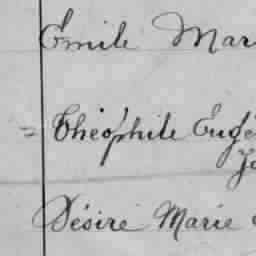 Émile Mar
= Théophile Eugé
Désiré Marie